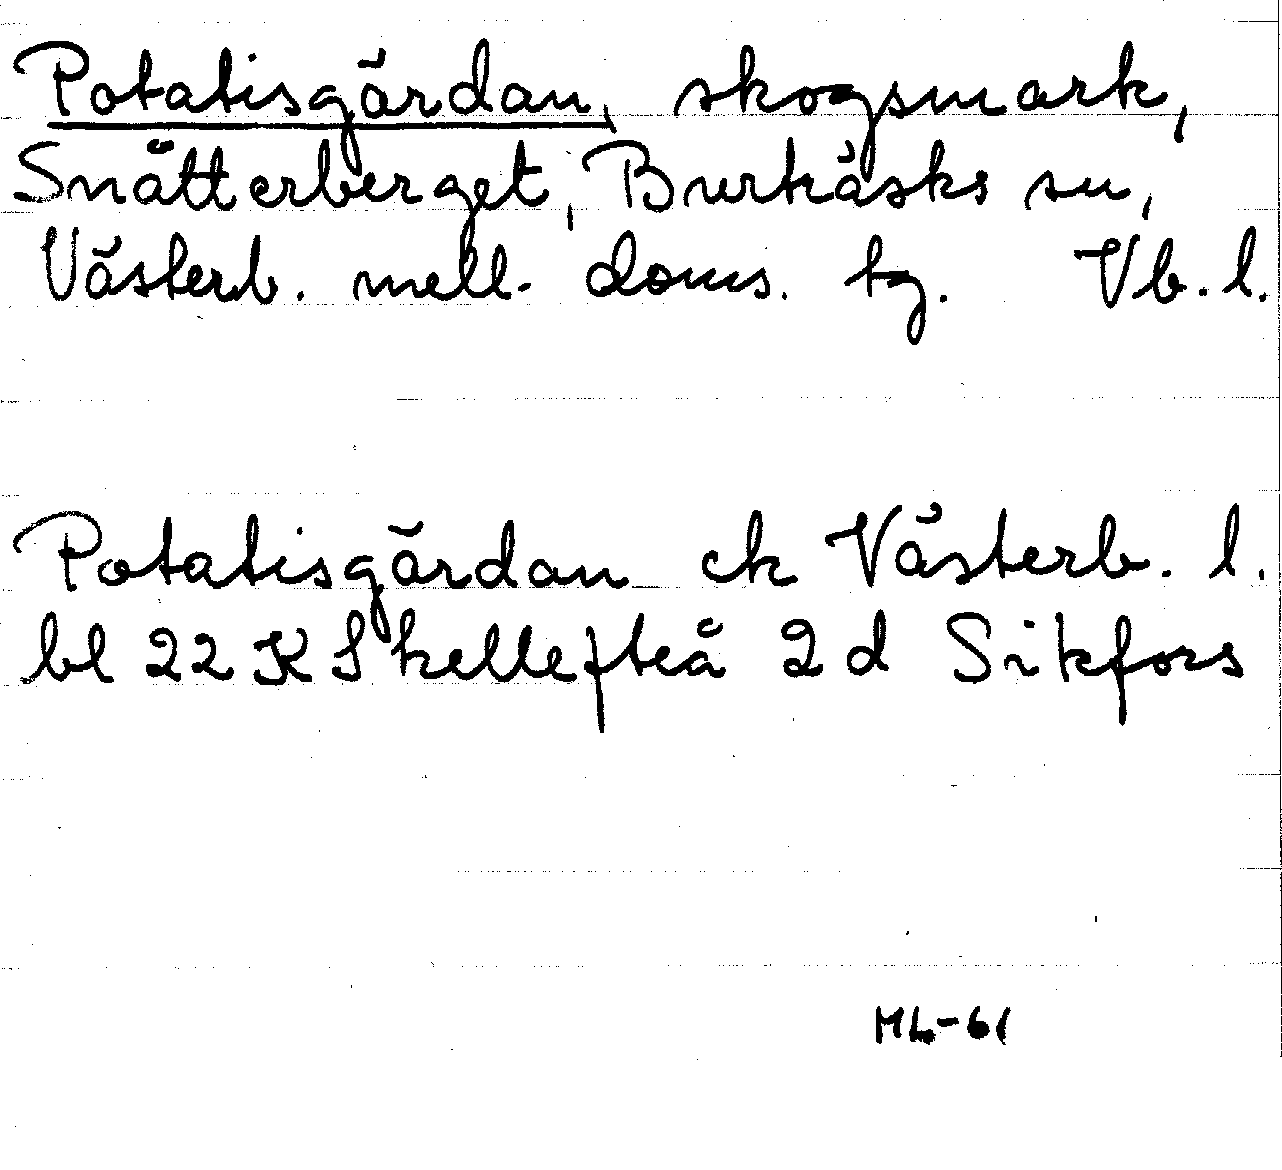 Potatisgärdan, skogsmark,
Snätterberget, Burträsks sn,
Västerb. mell. doms. tg. Vb. l.
Potatisgärdan ek Västerb. l.
bl 22 K Skellefteå 2 d Sikfors
ML-61